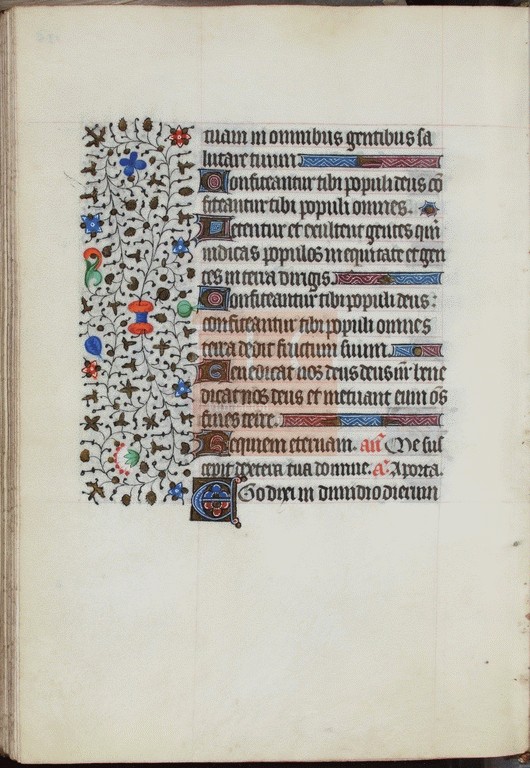 tuam in omnibus gentibus sa
lutare tuum.
Confiteantur tibi populi deus cō
fiteantur tibi populi omnes.
Letentur et exultent gentes qm̄
iudicas populos in equitate et gen
tes in terra dirigis.
Confiteantur tibi populi deus:
confiteantur tibi populi omnes
terra dedit fructum suum.
Benedicat nos deus deus nr̄ bene
dicat nos deus et metuant eum oēs
fines terre.
Requiem eternam. añ Me sus
cepit dextera tua domine. a. A porta.
Ego dixi in dimidio dierum